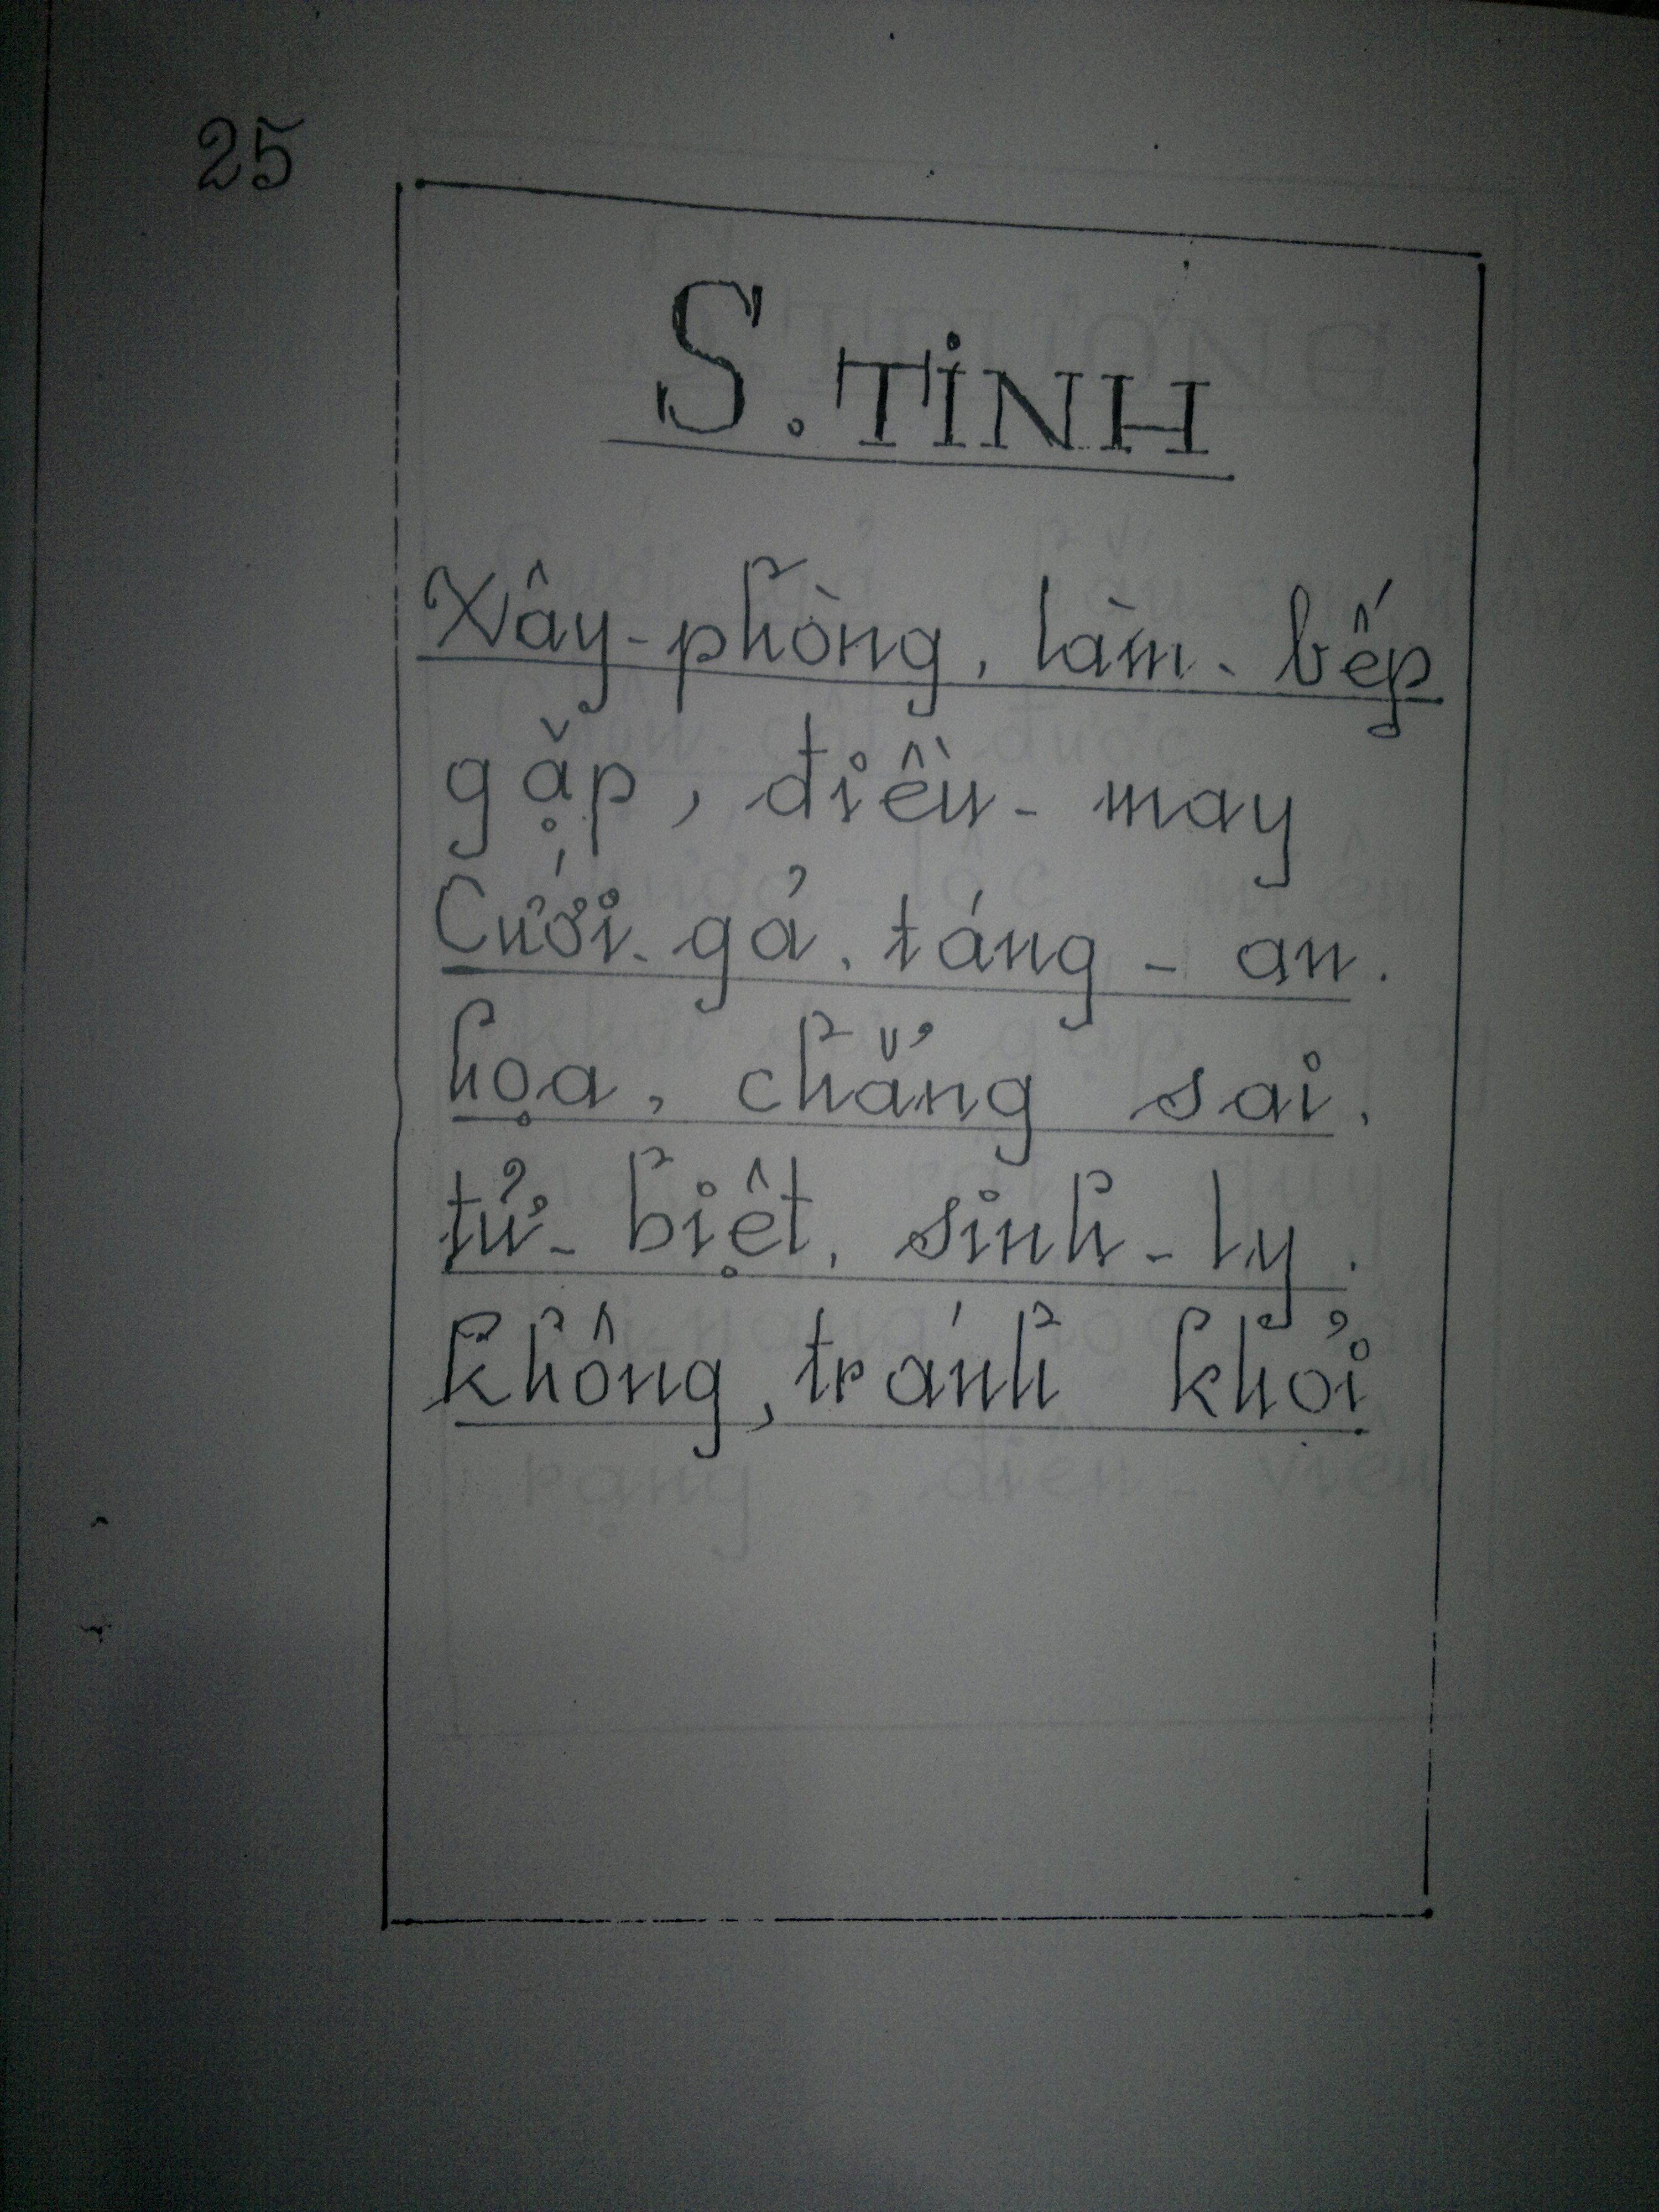 25
S. TINH
Xây-phòng, làm- bếp
gặp, điều- may
Cưới- gả, táng - an.
họa, chẳng sai,
tử- biệt, sinh - ly.
không, tránh khỏi